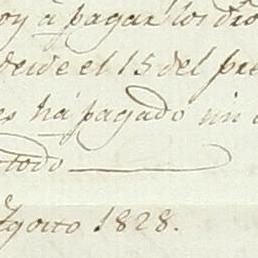 oy á pagar los dro
desde el 15 del pre
es há pagado un
todo
Agosto 1828.